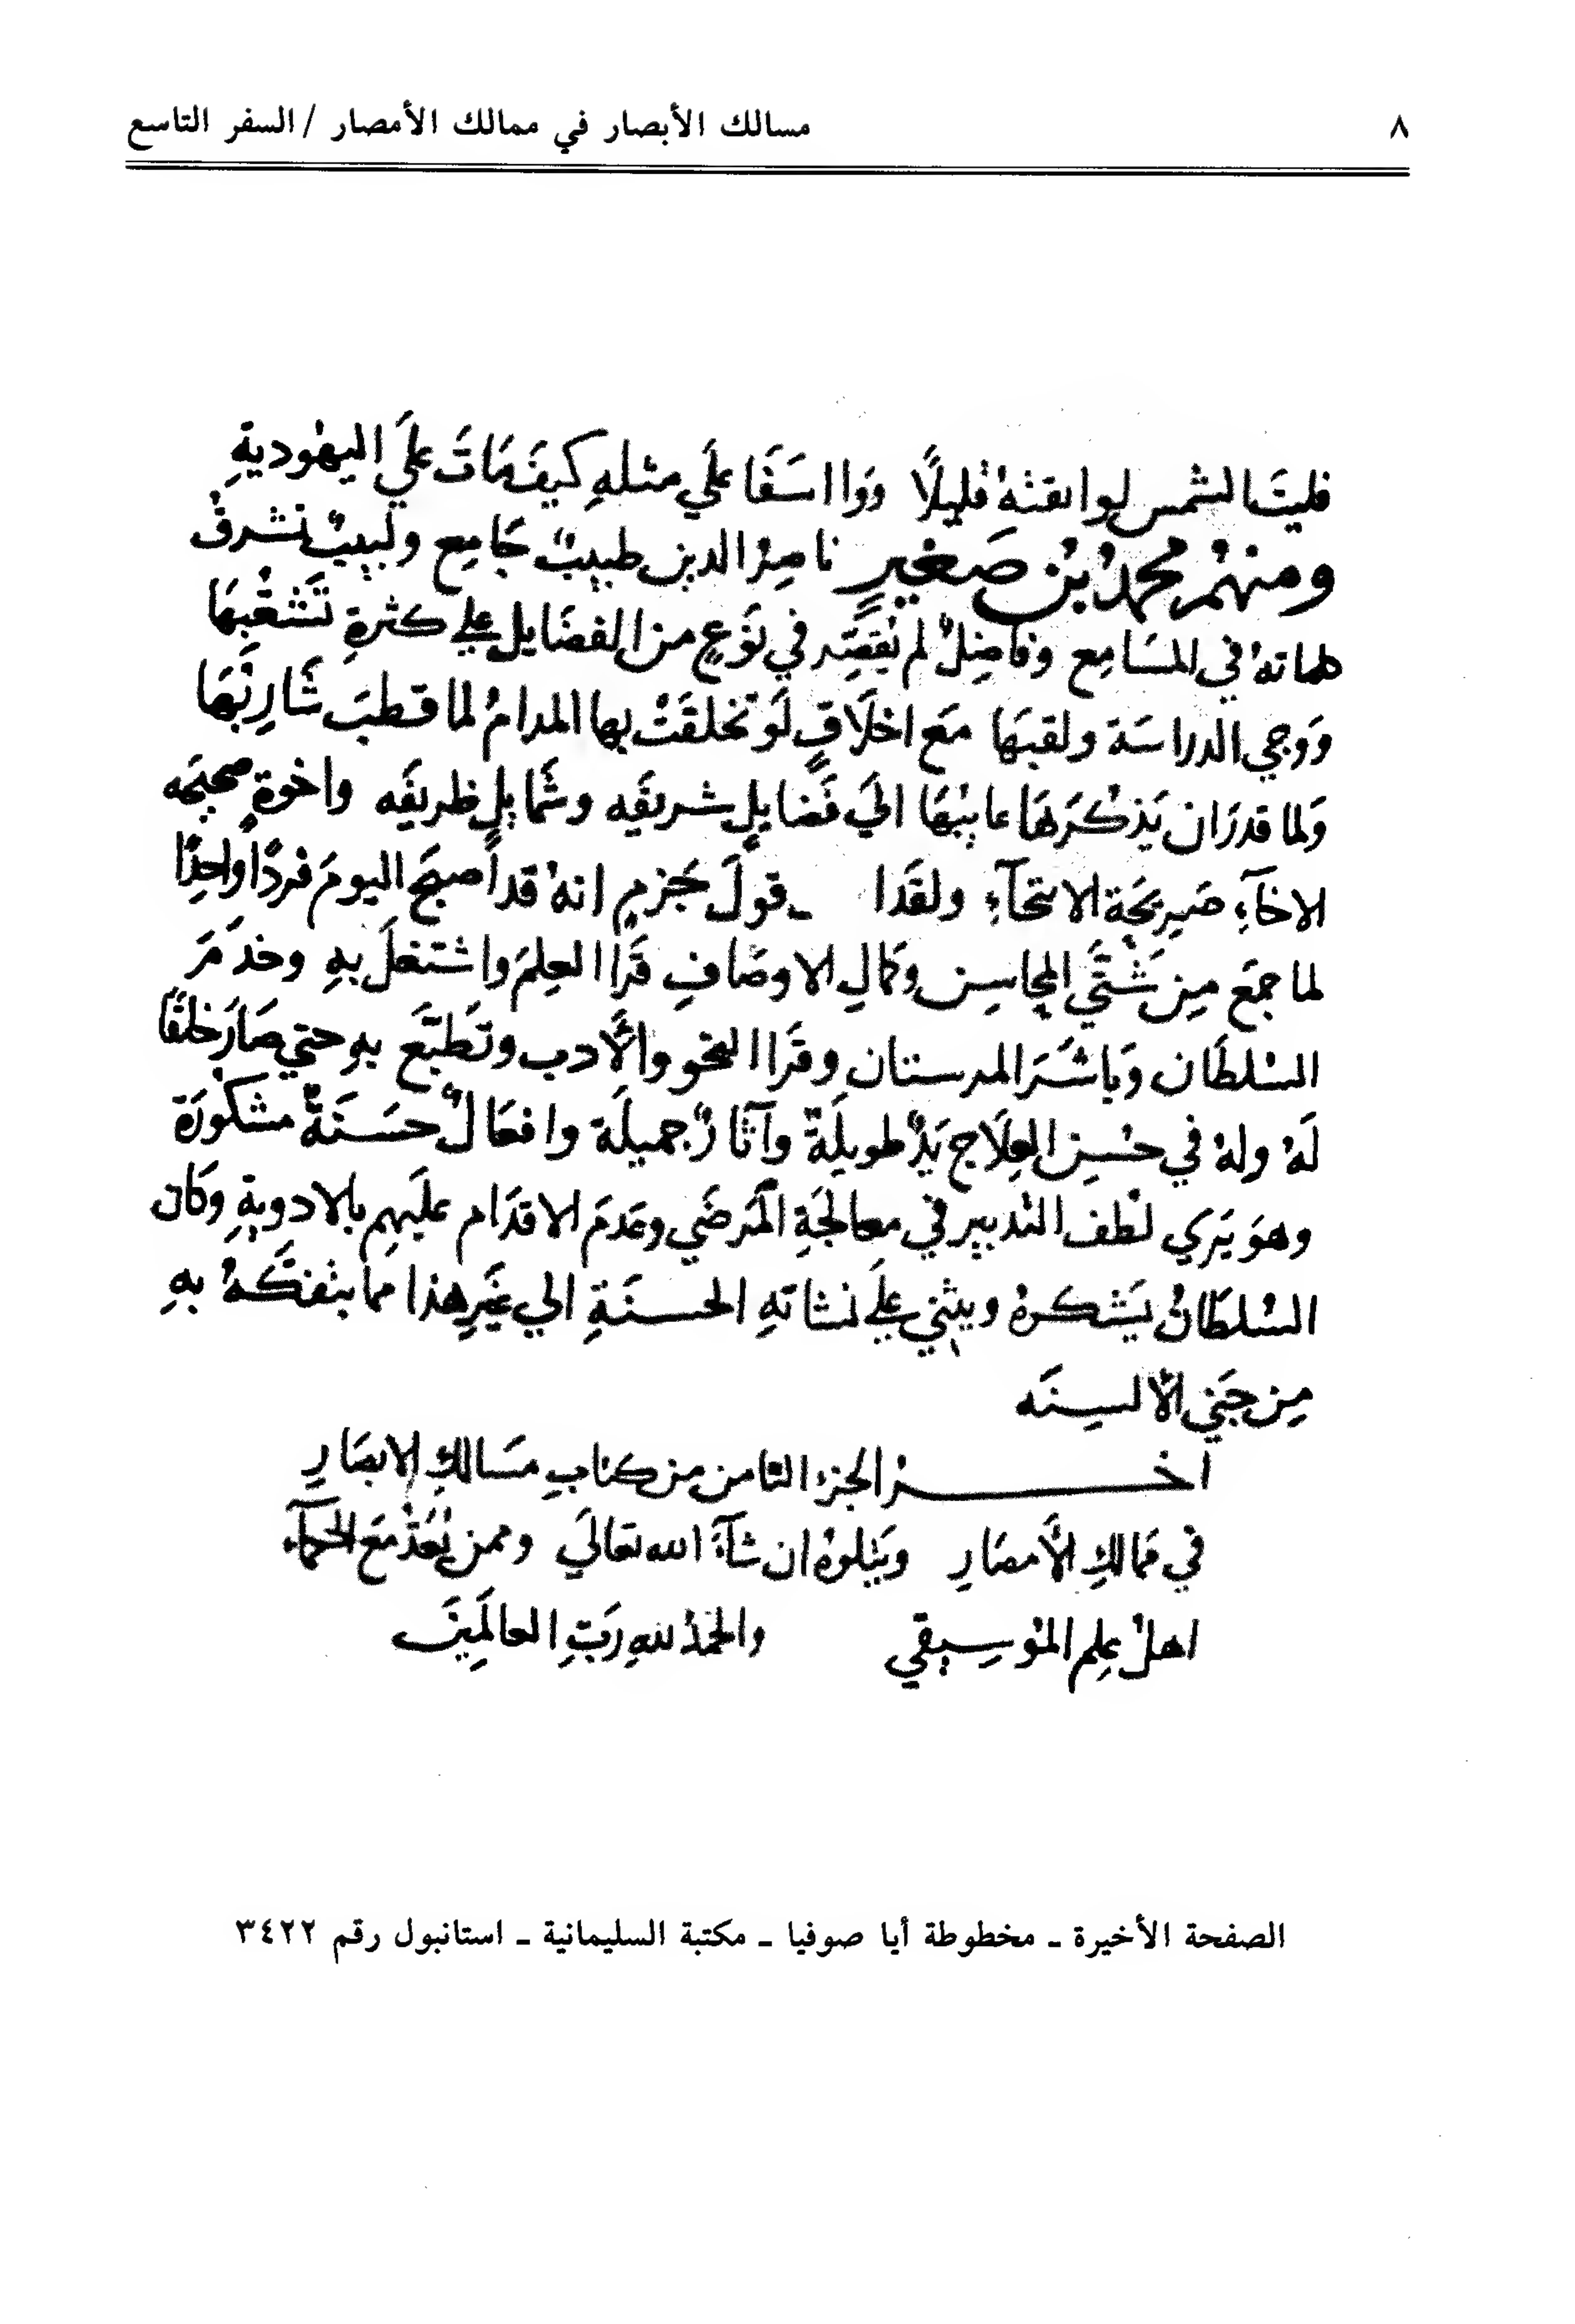 ٨
مسالك الأبصار في ممالك الأمصار / السفر التاسع
فليتَ الشمس لو ابقته قليلًا ووا اسَفَا علَي مثلهِ كيفَ مَاتَ علَي اليهوديةِ
ومنهُم محمدُ بنُ صَغيرٍ ناصرُ الدين طبيبٌ جَامِع ولبيبٌ تشرفُ
في المسَامِع وفاضِلٌ لم في نَوعٍ من الفضَايل علي كثرةِ تَشَعُّبِهَا
وَوجي الدراسَة ولقبهَا مَع اخلَاقٍ لَو تخلقَتْ بها المدامُ لما قطبَ شَارِبُهَا
وَلما قدرَ ان يَذكرَهَا عايبُهَا اليَ فَضايلٍ شريفَه وشَمايلٍ ظريفَه واخوةٍ صحيحَه
الاخآءِ صَريحَة الانتخآءِ ولقَد ا قولَ بجَزمٍ انهُ قد اَصبحَ اليومَ فردًا واحِدًا
لما جمَع مِن شَتَّي المحاسِن وكَمالِ الاوصَافِ قَرَا العِلمَ واشتغلَ بهِ وخدَمَ
السُلطَان وَباشَرَ المرستان وقَرَا النحو والأدب وتَطَبَّعَ بهِ حتي صَارَ خلقًا
لَهُ ولهُ في حُسنِ العِلَاجِ يَدٌ طويلَةٌ وآثَارٌ جميلَة وافعَالٌ حسَنَةٌ مشكورَة
وهوَ يَرَي لُطفَ التدبيرِ في معالجَةِ المَرضَي وعَدمَ الاقدَام علَيهِم بالادويةِ وَكَان
السُلطَانُ يَشكرهُ ويثني علَي نشاتهِ الحسنَةِ الي غَيرِ هذا مما يتفكَّهُ بهِ
مِن جَنَي الألسِنَه
اخرُ الجزءِ الثامن من كتابِ مَسَالكِ الابصَارِ
في مَمالكِ الأَمصَارِ ويَتلوهُ ان شَآءَ الله تعَالَي وممن يُعَدُّ مَعَ الحكمآءِ
اهلُ عِلمِ الموُسِيقي والحَمدُ للهِ رَبِّ العالَمِينَ
الصفحة الأخيرة ـ مخطوطة أيا صوفيا ـ مكتبة السليمانية ـ استانبول رقم ٣٤٢٢